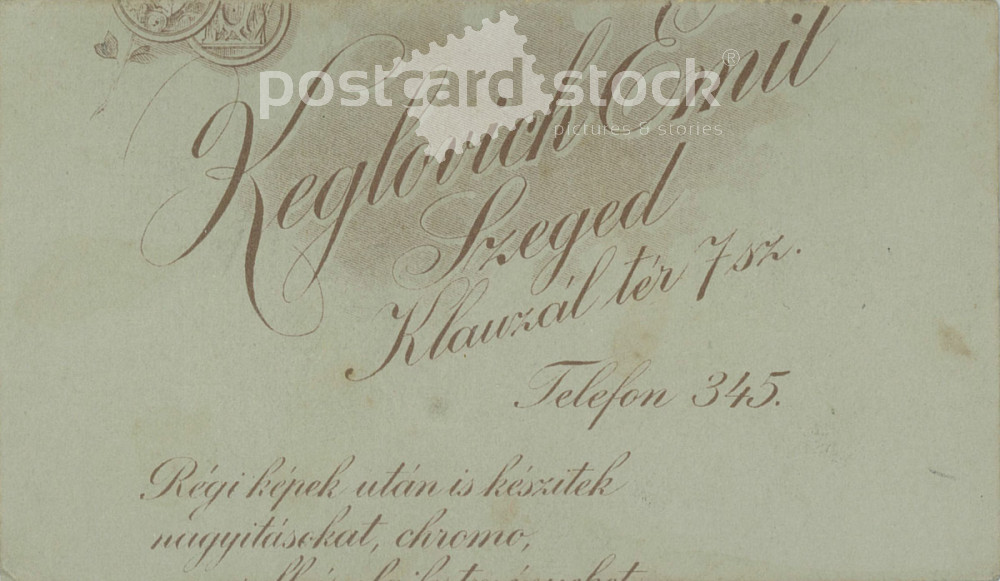 Keglovich Emil
postcard stock®
pictures & stories
Szeged
Klauzál tér 7 sz.
Telefon 345.
Régi képek után is készitek
nagyitásokat, chromo,